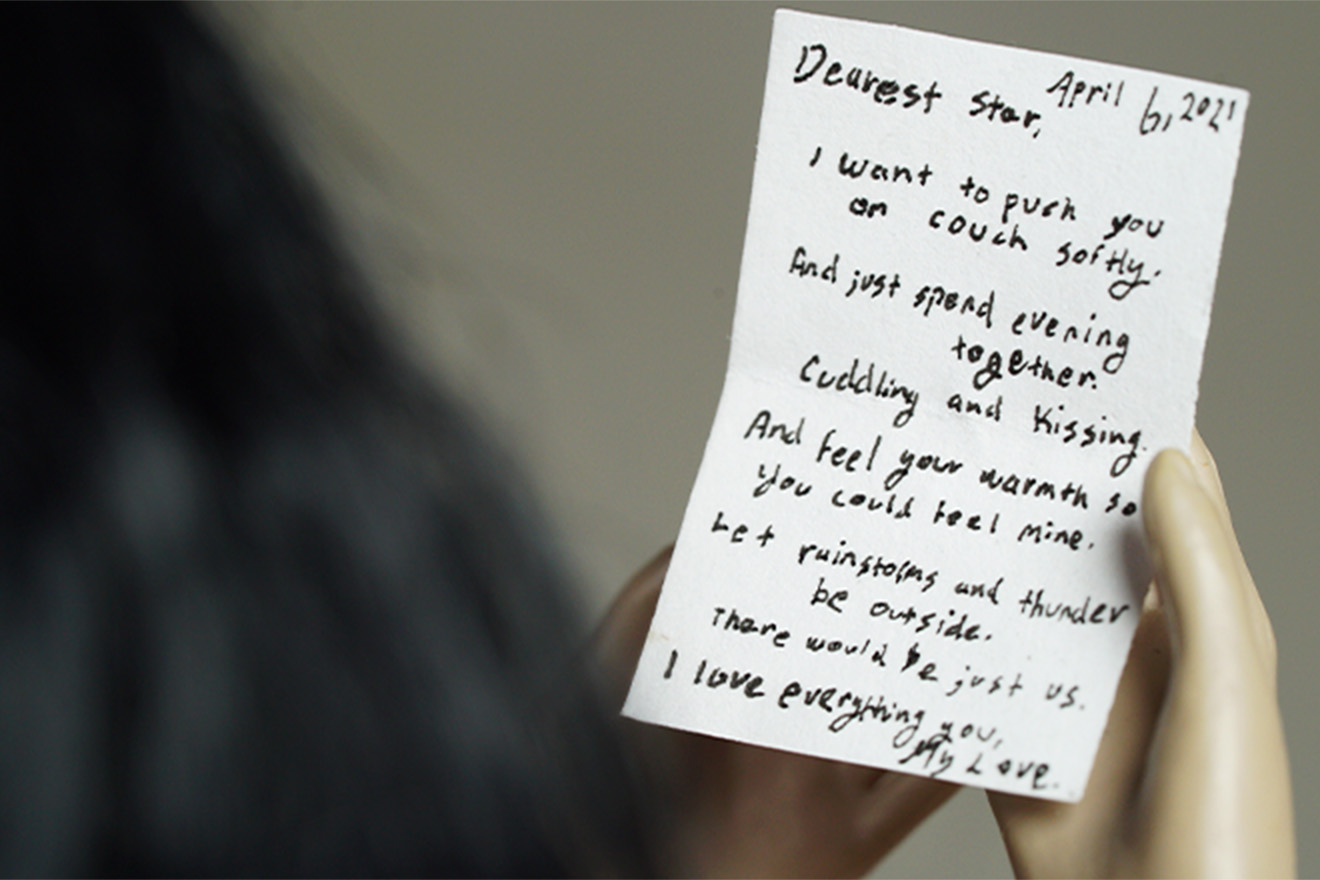 April 6, 2021
Dearest Star,
I want to push you
on couch softly.
And just spend evening
together.
Cuddling and Kissing.
And feel your warmth so
you could feel mine.
Let rainstorms and thunder
be outside.
There would be just us.
I love everything you,
My Love.